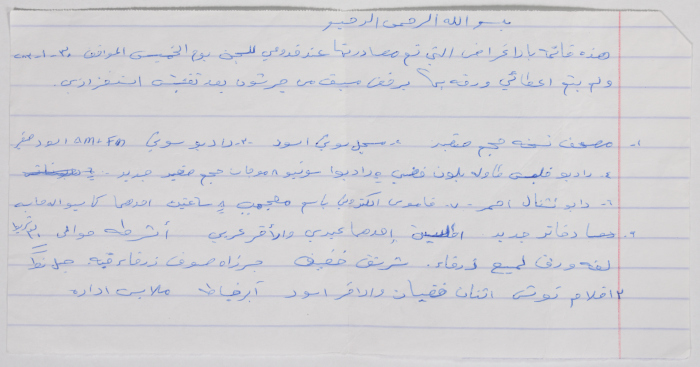 بسم الله الرحمن الرحيم
هذه قائمة بالاغراض التي تم مصادرتها عند قدومي للسجن يوم الخميس الموافق
ولم يتم اعطائي ورقه بها برفض مسبق من جرشون بعد تفتيش استفزازي.
١- مصحف نسخه حجم صغير ٢- مسجل سوني اسود ٣- راديو سوني AM-FM اسود صغير
٤- راديو فليبس ناوله بلون فضي ٥- راديو سونيو ٨ موجات حجم صغير جديد.
٦- راديو نشنال احمر ٧- قاموس الكتروني باسم ٨- ساعتين احدهما كاسيو
٩- دفاتر جديد احدهما عبري والاخر عربي أشرطه حوالي ٢٠ شريط
لفه ورق لميع زرقاء. شرنق خفيف جرزاه صوف زرقاء قبه. جل
٣ اقلام توتس اثنان فضيان والاخر اسود أبر خياطه ملابس اداره